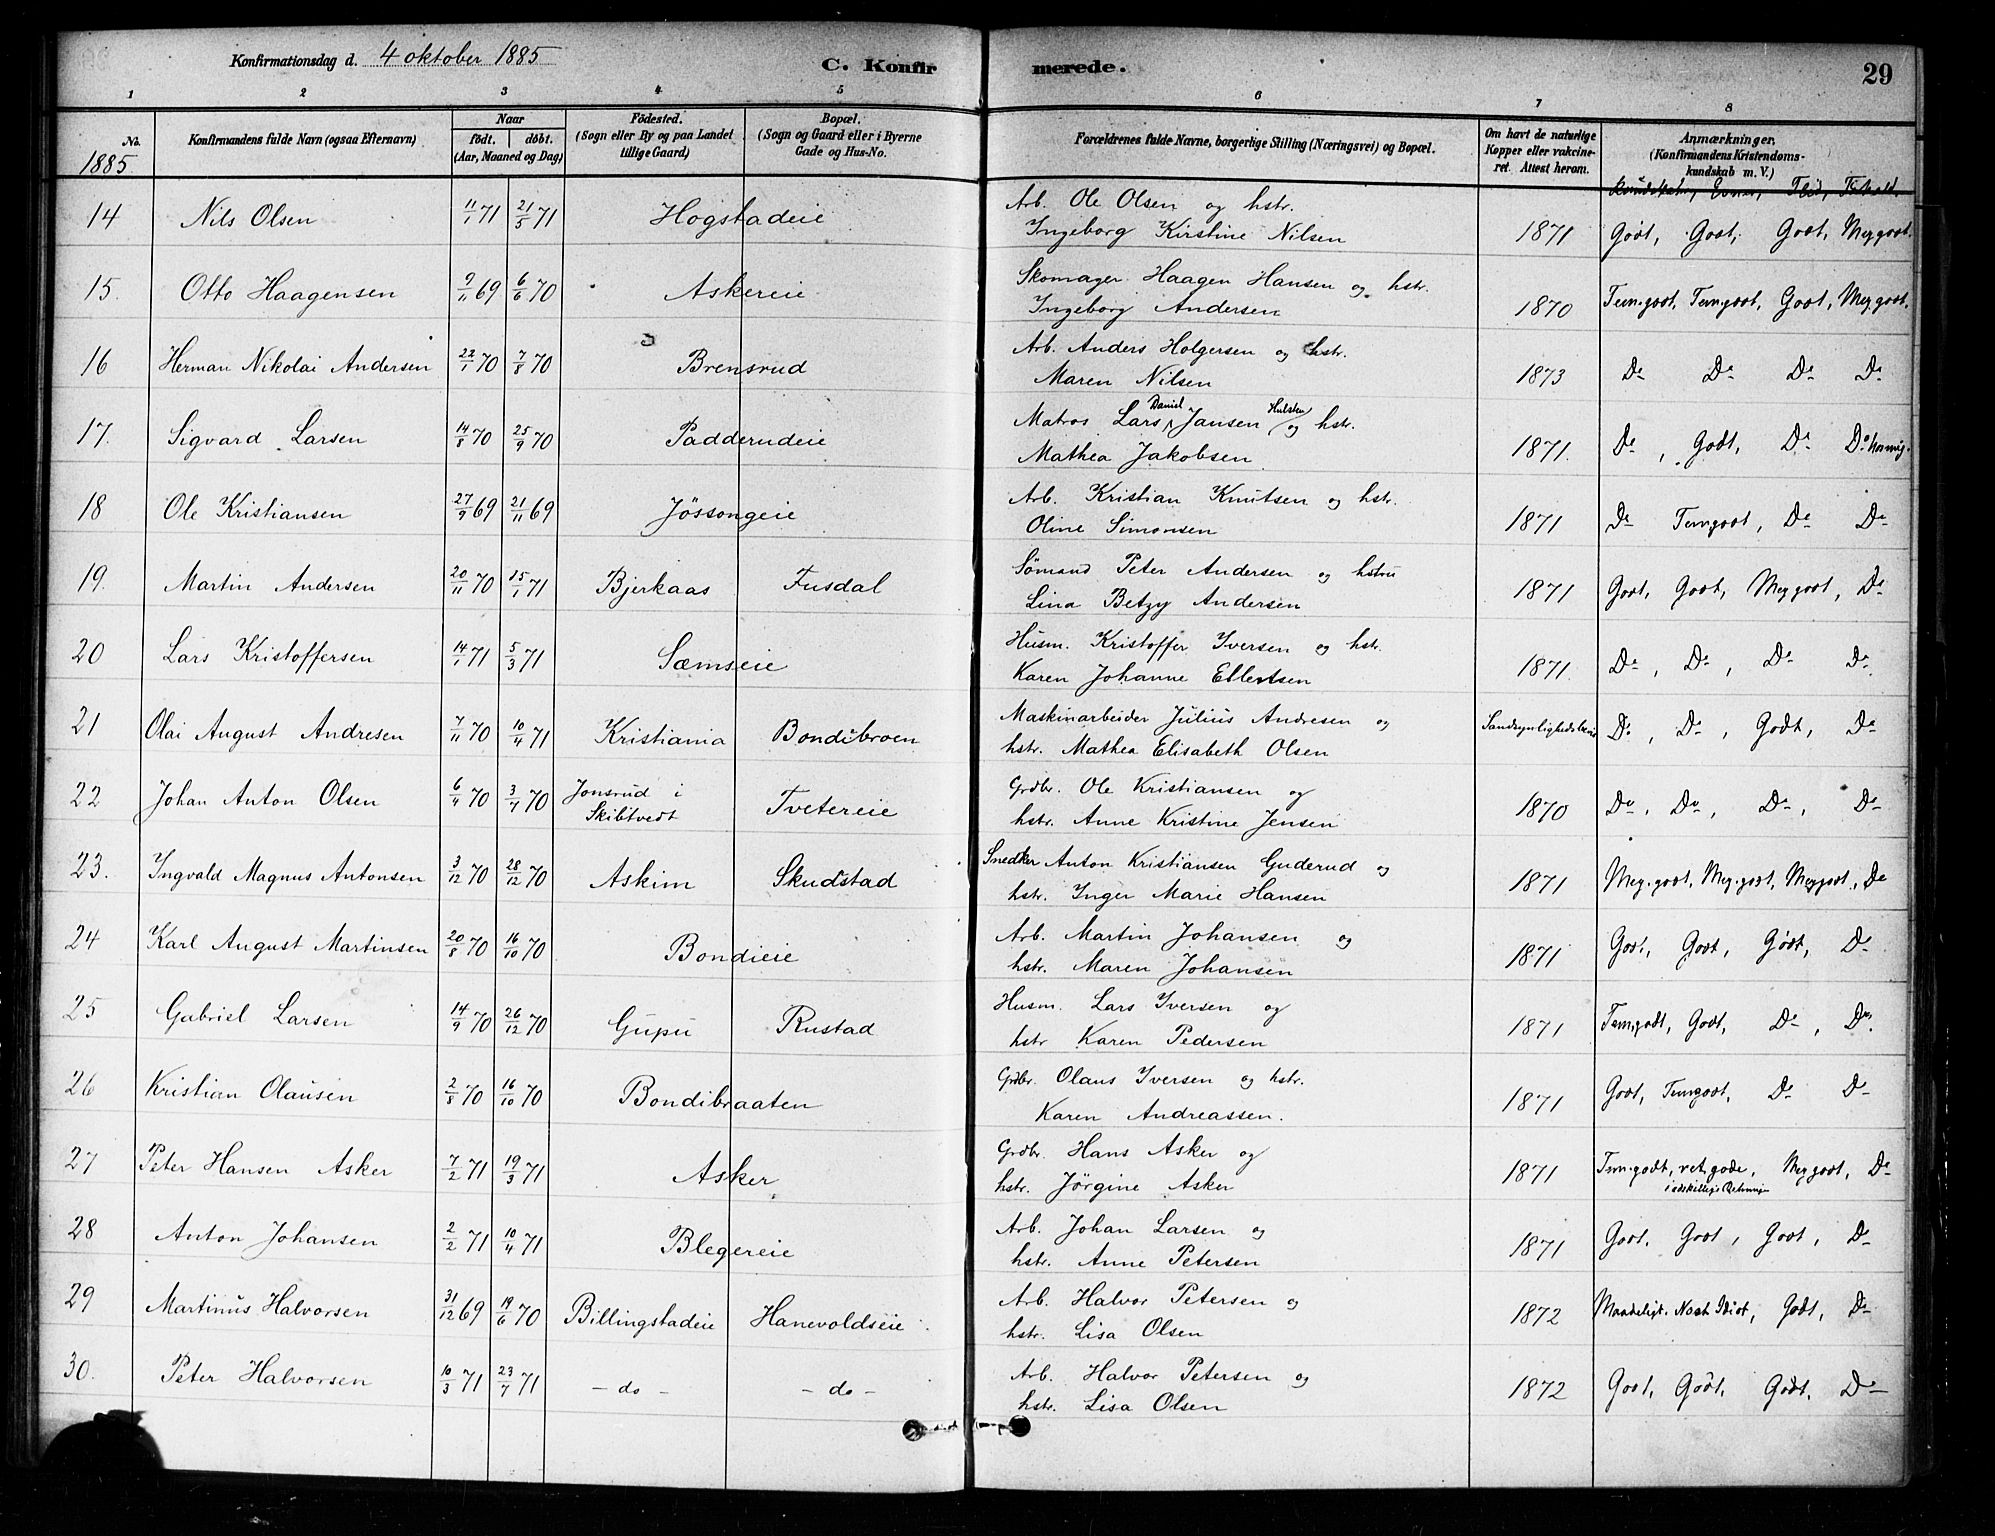 Konfirmationsdag d. 4 oktober 1885 C. Konfirmerede. 29
1 2 3 4 5 6 7 8
No. Konfirmandens fulde Navn (ogsaa Efternavn) Naar født. døbt. (Aar, Maaned og Dag) Fødested. (Sogn eller By og paa Landet tillige Gaard) Bopæl. (Sogn og Gaard eller i Byerne Gade og Hus-No. Forældrenes fulde Navne, borgerlige Stilling (Næringsvei) og Bopæl. Om havt de naturlige Kopper eller vakcineret. Attest herom. Anmærkninger. (Konfirmandens Kristendomskundskab m. V.)
1885 Kundskab, Evner, Flid, Forhold.
14 Nils Olsen 11/1 71 21/5 71 Hogstadeie Arb. Ole Olsen og hstr. Ingeborg Kirstine Nilsen 1871 Godt, Godt, Godt, Meg.godt.
15. Otto Haagensen 9/11 69 6/6 70 Askereie Skomager Haagen Hansen og hstr. Ingeborg Andersen 1870 Tem.godt, Tem.godt, Godt, Meg.godt.
16 Herman Nikolai Andersen 22/1 70 7/8 70 Brensrud Arb. Anders Holgersen og hstr. Maren Nilsen 1873 Do Do Do Do
17. Sigvard Larsen 14/8 70 25/9 70 Padderudeie Matros Lars Daniel Jansen og hstr. Mathea Jakobsen 1871. Do, Godt, Do Do
18 Ole Kristiansen 27/9 69 21/11 69 Jøssongeie Arb. Kristian Knutsen og hstr. Oline Simonsen 1871 Do Tem.godt, Do Do
19. Martin Andersen 20/11 70 15/1 71 Bjerkaas Fusdal Sømand Peter Andersen og hstru Lina Betzy Andersen 1871 Godt, Godt, Meg godt, Do
20 Lars Kristoffersen 14/1 71 5/3 71 Sæmseie Husm. Kristoffer Iversen og hstr. Karen Johanne Ellertsen 1871. Do, Do, Do Do
21 Olai August Andresen 7/11 70 10/4 71 Kristiania Bondibroen Maskinarbeider Julius Andresen og hstr. Mathea Elisabeth Olsen Sandsynlighedsbevis Do, Do, Godt, Do
22 Johan Anton Olsen 6/4 70 3/7 70 Jonsrud i Skibtvedt Tvetereie Grdbr. Ole Kristiansen og hstr. Anne Kristine Jensen 1870 Do, Do, Do, Do
23. Ingvald Magnus Antonsen 3/12 70 28/12 70 Askim Skudstad Snedker Anton Kristiansen Guderud og hstr. Inger Marie Hansen 1871 Meg.godt, Meg.godt, Meg godt, Do
24 Karl August Martinsen 20/8 70 16/10 70 Bondieie Arb. Martin Johansen og hstr. Maren Johansen 1871 Godt, Godt, Godt, Do
25 Gabriel Larsen 14/9 70 26/12 70 Gupu Rustad Husm. Lars Iversen og hstr Karen Pedersen 1871 Tem.godt, Godt, Do, Do.
26 Kristian Olausen 2/8 70 16/10 70 Bondibraaten Grdbr. Olaus Iversen og hstr. Karen Andreassen. 1871 Godt, Temgodt, Do Do
27 Peter Hansen Asker 7/2 71 19/3 71 Asker Grdbr. Hans Asker og hstr. Jørgine Asker 1871 Tem.godt, ret gode, i adskillige Retninger Meg godt, Do
28 Anton Johansen 2/2 71 10/4 71 Blegereie Arb. Johan Larsen og hstr. Anne Petersen 1871 Godt, Godt, Godt, Do
29 Martinus Halvorsen 31/12 69 19/6 70 Billingstadeie Hanevoldseie Arb. Halvor Petersen og hstr. Lisa Olsen 1872 Maadeligt. Næst Idiot, Godt, Do
30. Peter Halvorsen 10/3 71 23/7 71 - do - - do - Arb. Halvor Petersen og hstr. Lisa Olsen 1872 Godt, Godt, Godt, Do